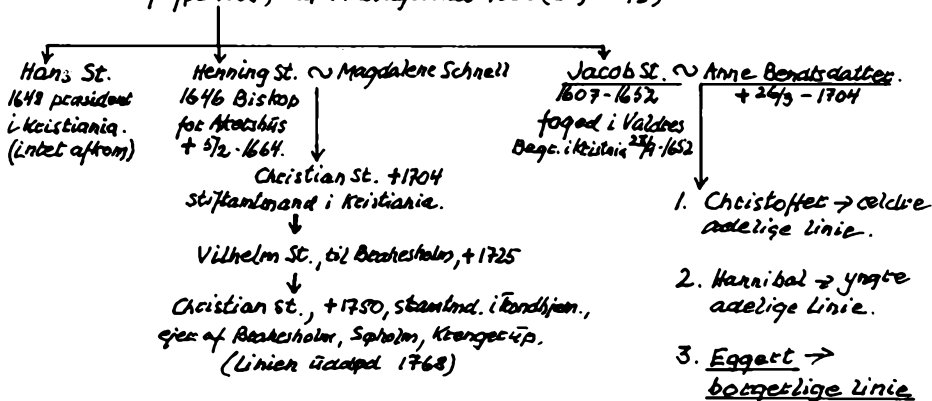 Hans St.
1648 præsident
i Kristiania.
(intet afkom)
Henning St. ~ Magdalene Schnell
1646 Biskop
for Akershus
+ 5/2-1664.
Christian St. +1704
stiftamtmand i Kristiania.
Vilhelm St., til Brahesholm, +1725
Christian St., +1750, stamtmd. i Trondhjem.,
ejer af Brahesholm, Søholm, Krengerup.
(Linien uddød 1768)
Jacob St. ~ Anne Bendtsdatter.
1607-1652
+ 26/3-1704
foged i Valdres
Begr. i Kristnia 1652
1. Christoffer → ældre
adelige linie.
2. Hannibal → yngre
adelige linie.
3. Eggert →
borgerlige linie